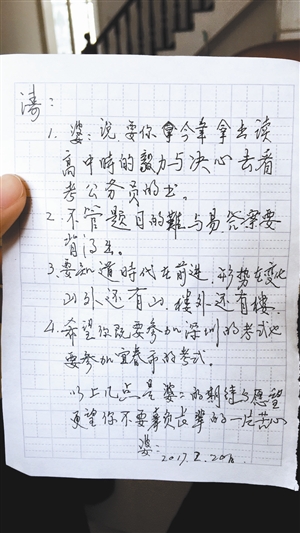 涛：
1. 婆：说要你拿今年拿出读
高中時的毅力与决心去看
考公务员的书。
2. 不管题目的難与易答案要
背得出。
3. 要知道時代在前进，形势在变化
山外还有山，楼外还有楼。
4. 希望你既要参加深圳的考试也
要参加宜春市的考试。
以上几点是婆：的期待与愿望
更望你不要辜负長辈的一片苦心
婆：
2017.2.20